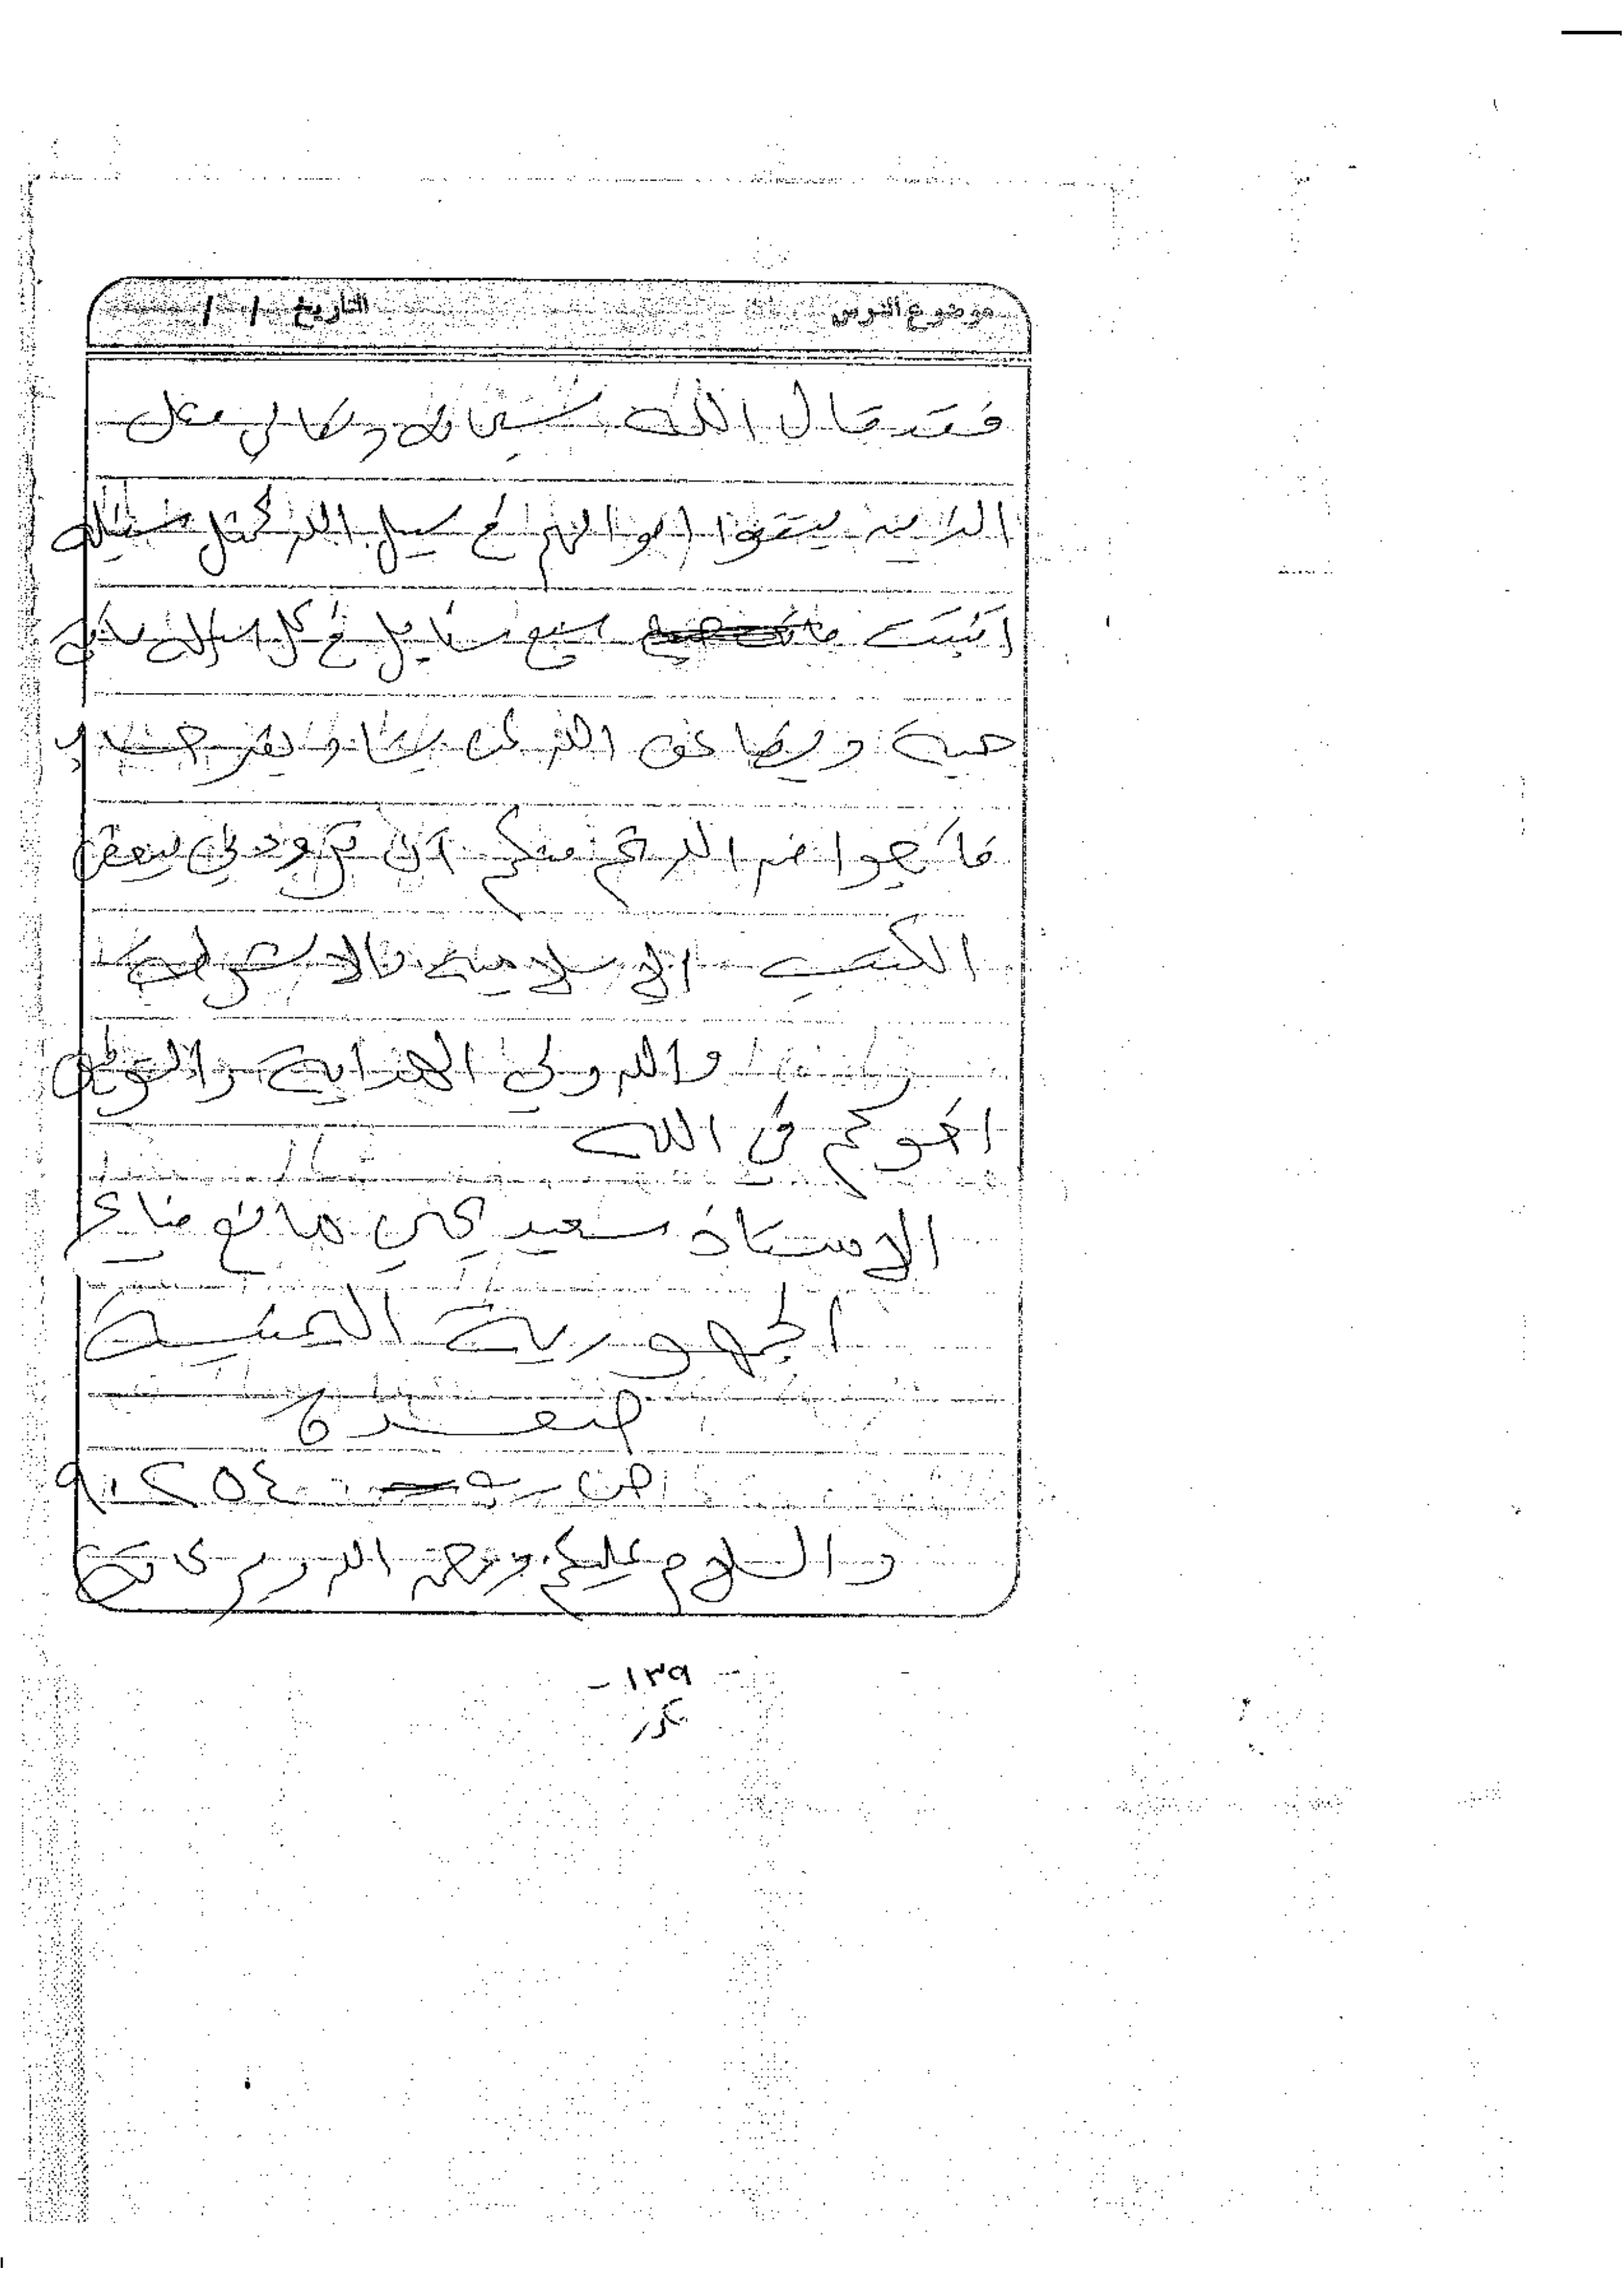 موضوع الدرس التاريخ / /
فقد قال الله سبحانه وتعالى مثل
الذين ينفقوا اموالهم في سبيل الله كمثل حبة
انبتت سبع سنابل في كل سنبلة مائة
حبة ويضاعف الله لمن يشاء
فأرجوا من الله ثم منكم أن تزودوني ببعض
الكتب الإسلامية والاشرطة
والله ولي الهداية والتوفيق
اخوكم في الله
الاستاذ سعيد يحيى مانع
الجمهورية اليمنية
صعدة
ص ب ٩٠٢٥٤
والسلام عليكم ورحمة الله وبركاته
- ١٣٩ -